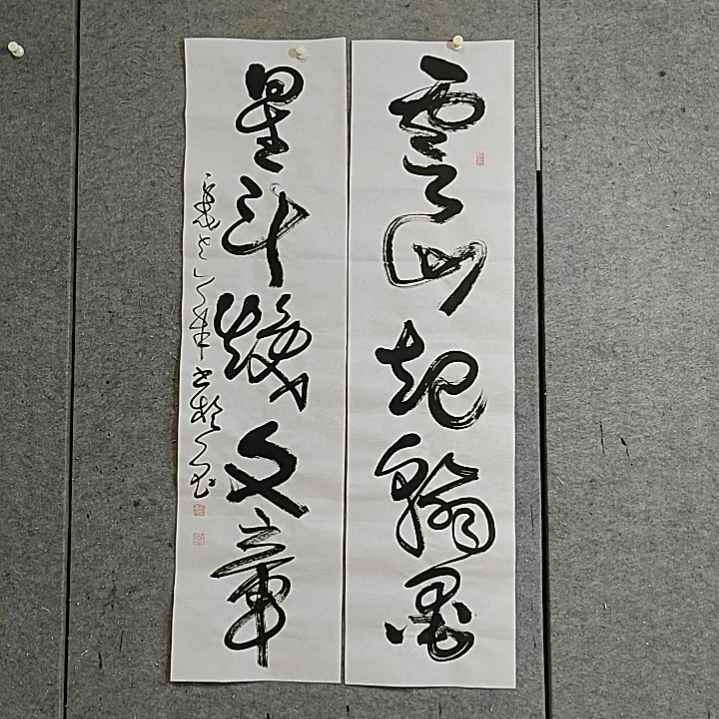 雲山起翰墨
星斗焕文章